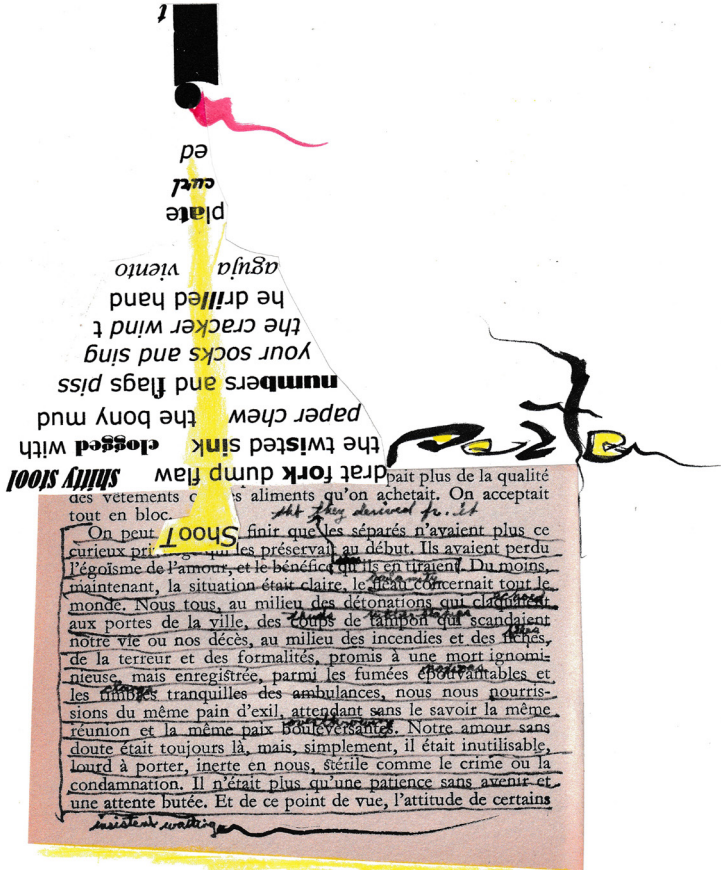 ShooT
drat fork dump flaw shitty stool
the twisted sink clogged with
paper chew the bony mud
numbers and flags piss
your socks and sing
the cracker wind t
he drilled hand
aguja viento
plate
curl
ed
t
pait plus de la qualité
des vêtements es aliments qu'on achetait. On acceptait
tout en bloc.
tht they derived fr. it
On peut finir que les séparés n'avaient plus ce
curieux pri qui les préservait au début. Ils avaient perdu
l'égoïsme de l'amour, et le bénéfice qu'ils en tiraient. Du moins,
maintenant, la situation était claire, le fléau concernait tout le
monde. Nous tous, au milieu des détonations qui claquaient
aux portes de la ville, des coups de tampon qui scandaient
notre vie ou nos décès, au milieu des incendies et des fiches,
de la terreur et des formalités, promis à une mort ignomi-
nieuse, mais enregistrée, parmi les fumées épouvantables et
les timbres tranquilles des ambulances, nous nous nourris-
sions du même pain d'exil, attendant sans le savoir la même
réunion et la même paix bouleversantes. Notre amour sans
doute était toujours là, mais, simplement, il était inutilisable,
lourd à porter, inerte en nous, stérile comme le crime ou la
condamnation. Il n'était plus qu'une patience sans avenir et
une attente butée. Et de ce point de vue, l'attitude de certains
insistent waiting